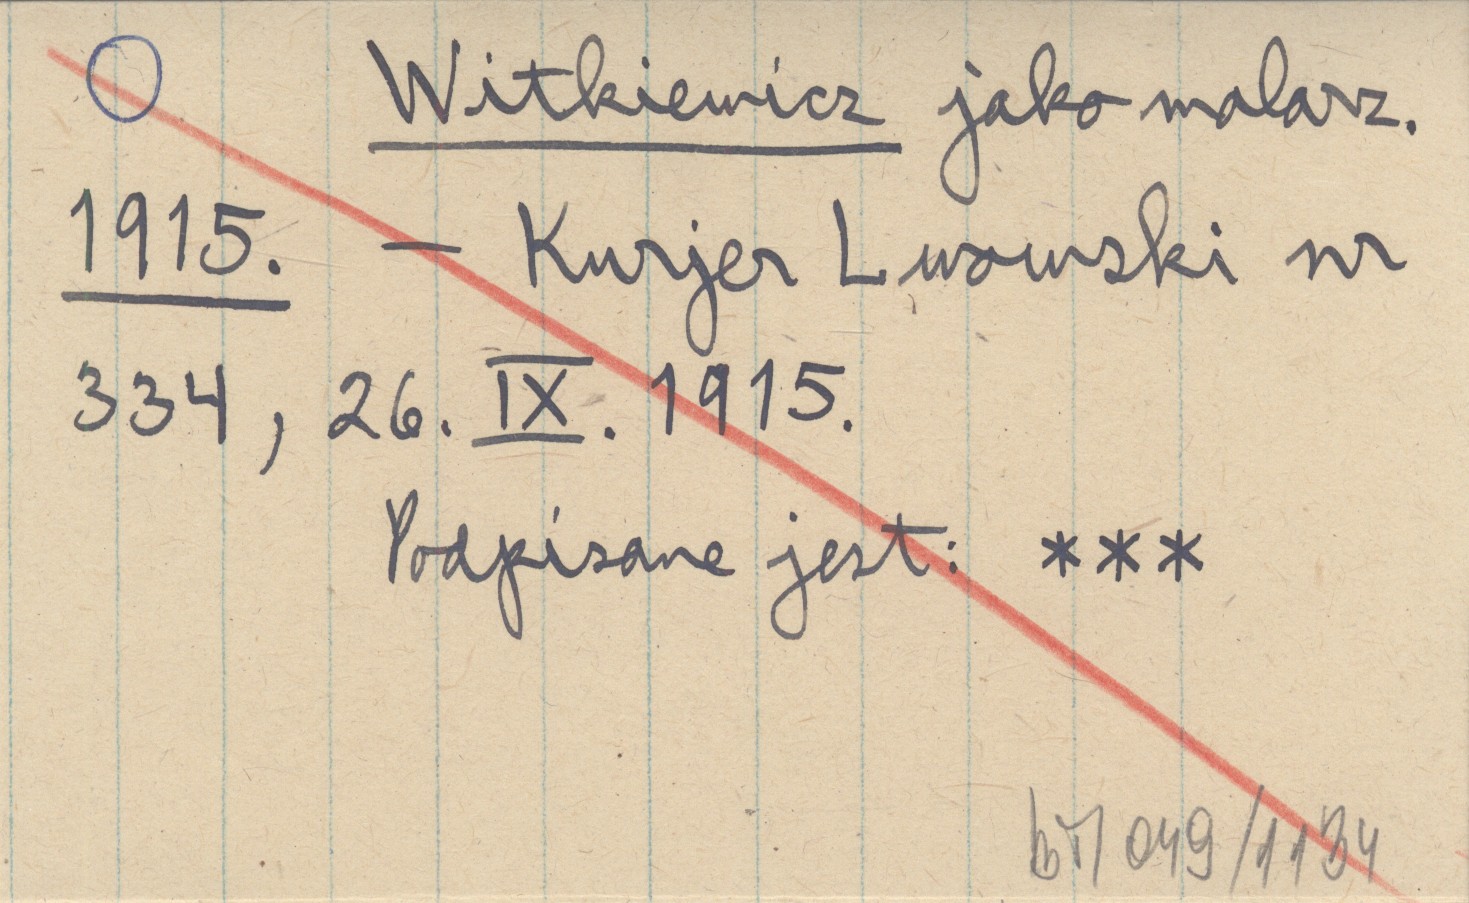 Witkiewicz jako malarz.
1915. — Kurjer Lwowski nr
334, 26. IX. 1915.
Podpisane jest: ***
049/1134